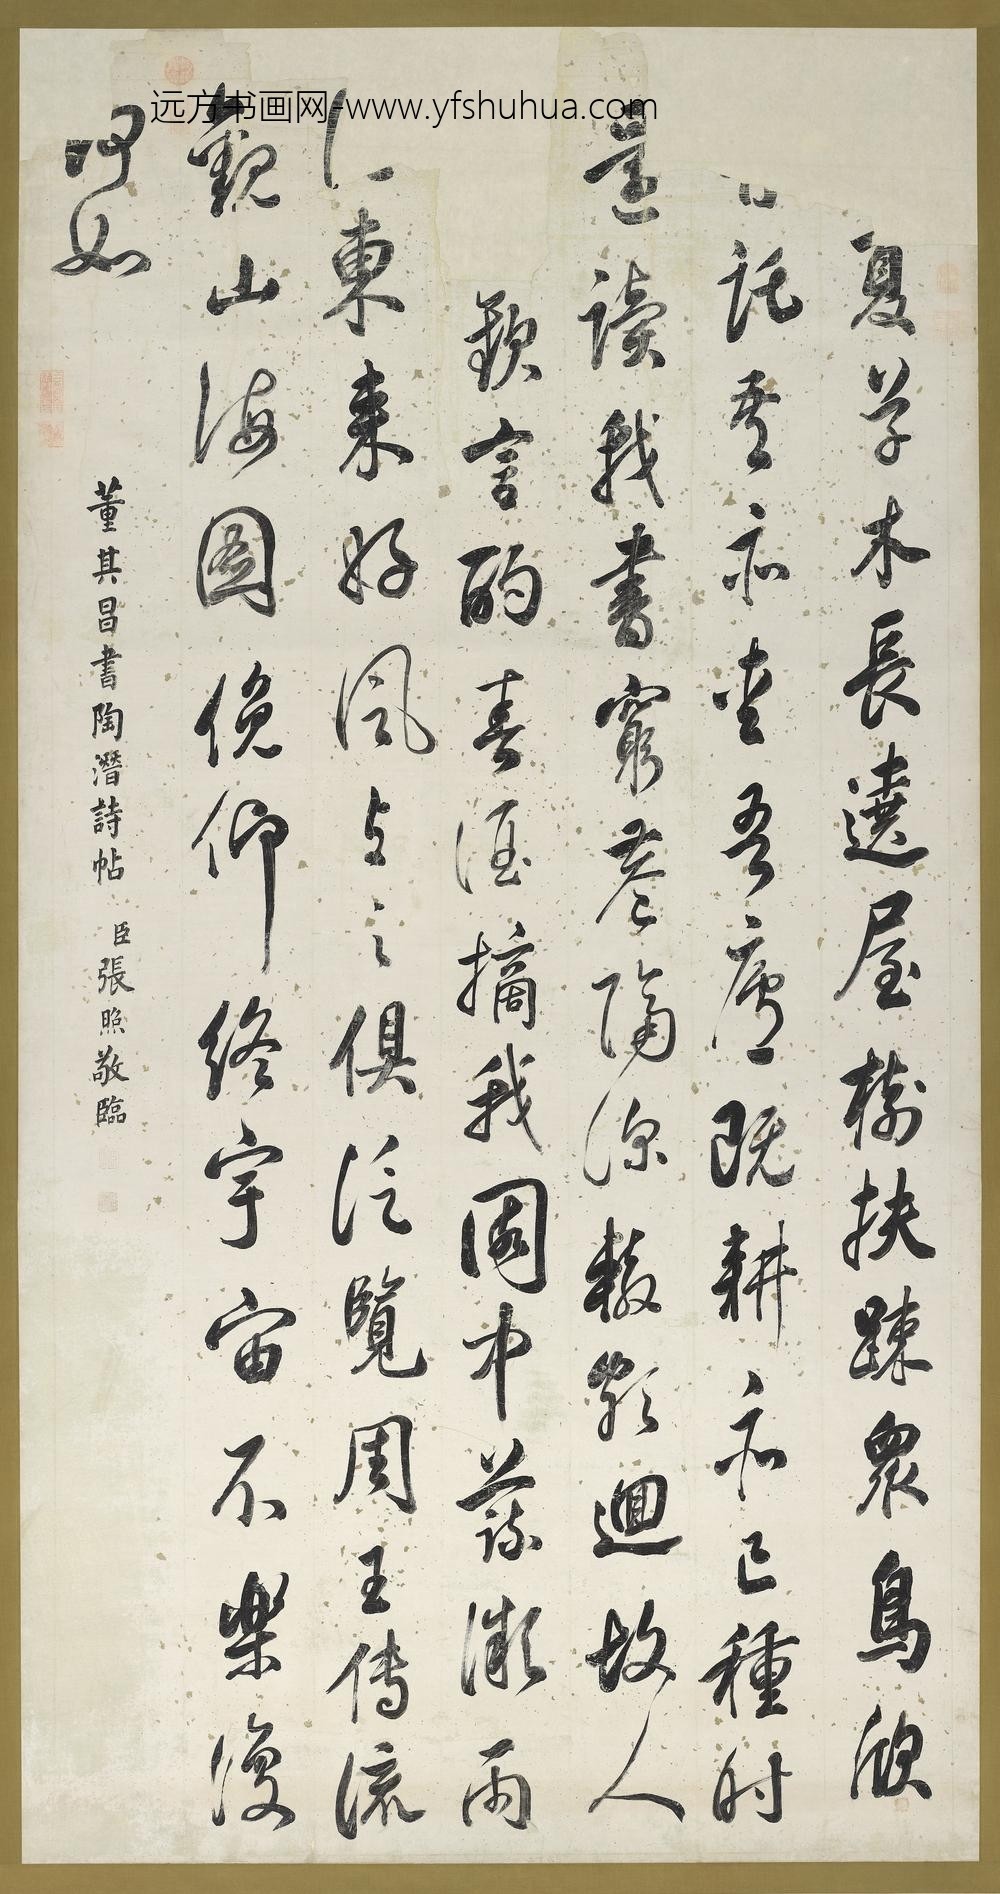 远方书画网-www.yfshuhua.com
夏草木長遶屋樹扶疎衆鳥欣
託吾亦愛吾廬既耕亦已種時
還讀我書窮巷隔深轍頗迴故人
歡言酌春酒摘我園中蔬微雨
東來好風與之俱汎覽周王傳流
觀山海圖俛仰終宇宙不樂復
何如
董其昌書陶潛詩帖 臣張照敬臨